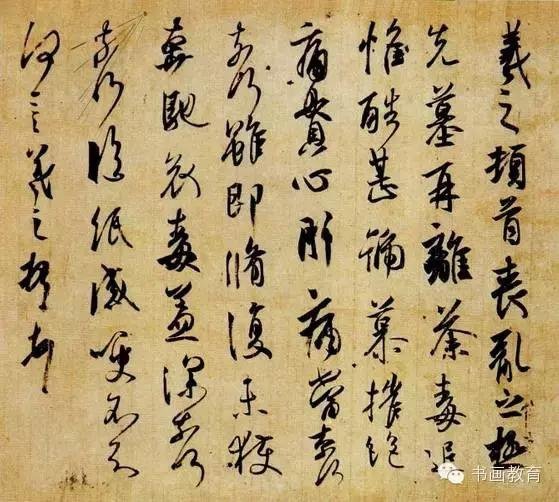 羲之頓首喪亂之極
先墓再離荼毒追
惟酷甚號慕摧絕
痛貫心肝痛當奈何
奈何雖即脩復未獲
奔馳哀毒益深奈何
奈何臨紙感哽不知
何言羲之頓首頓首
书画教育